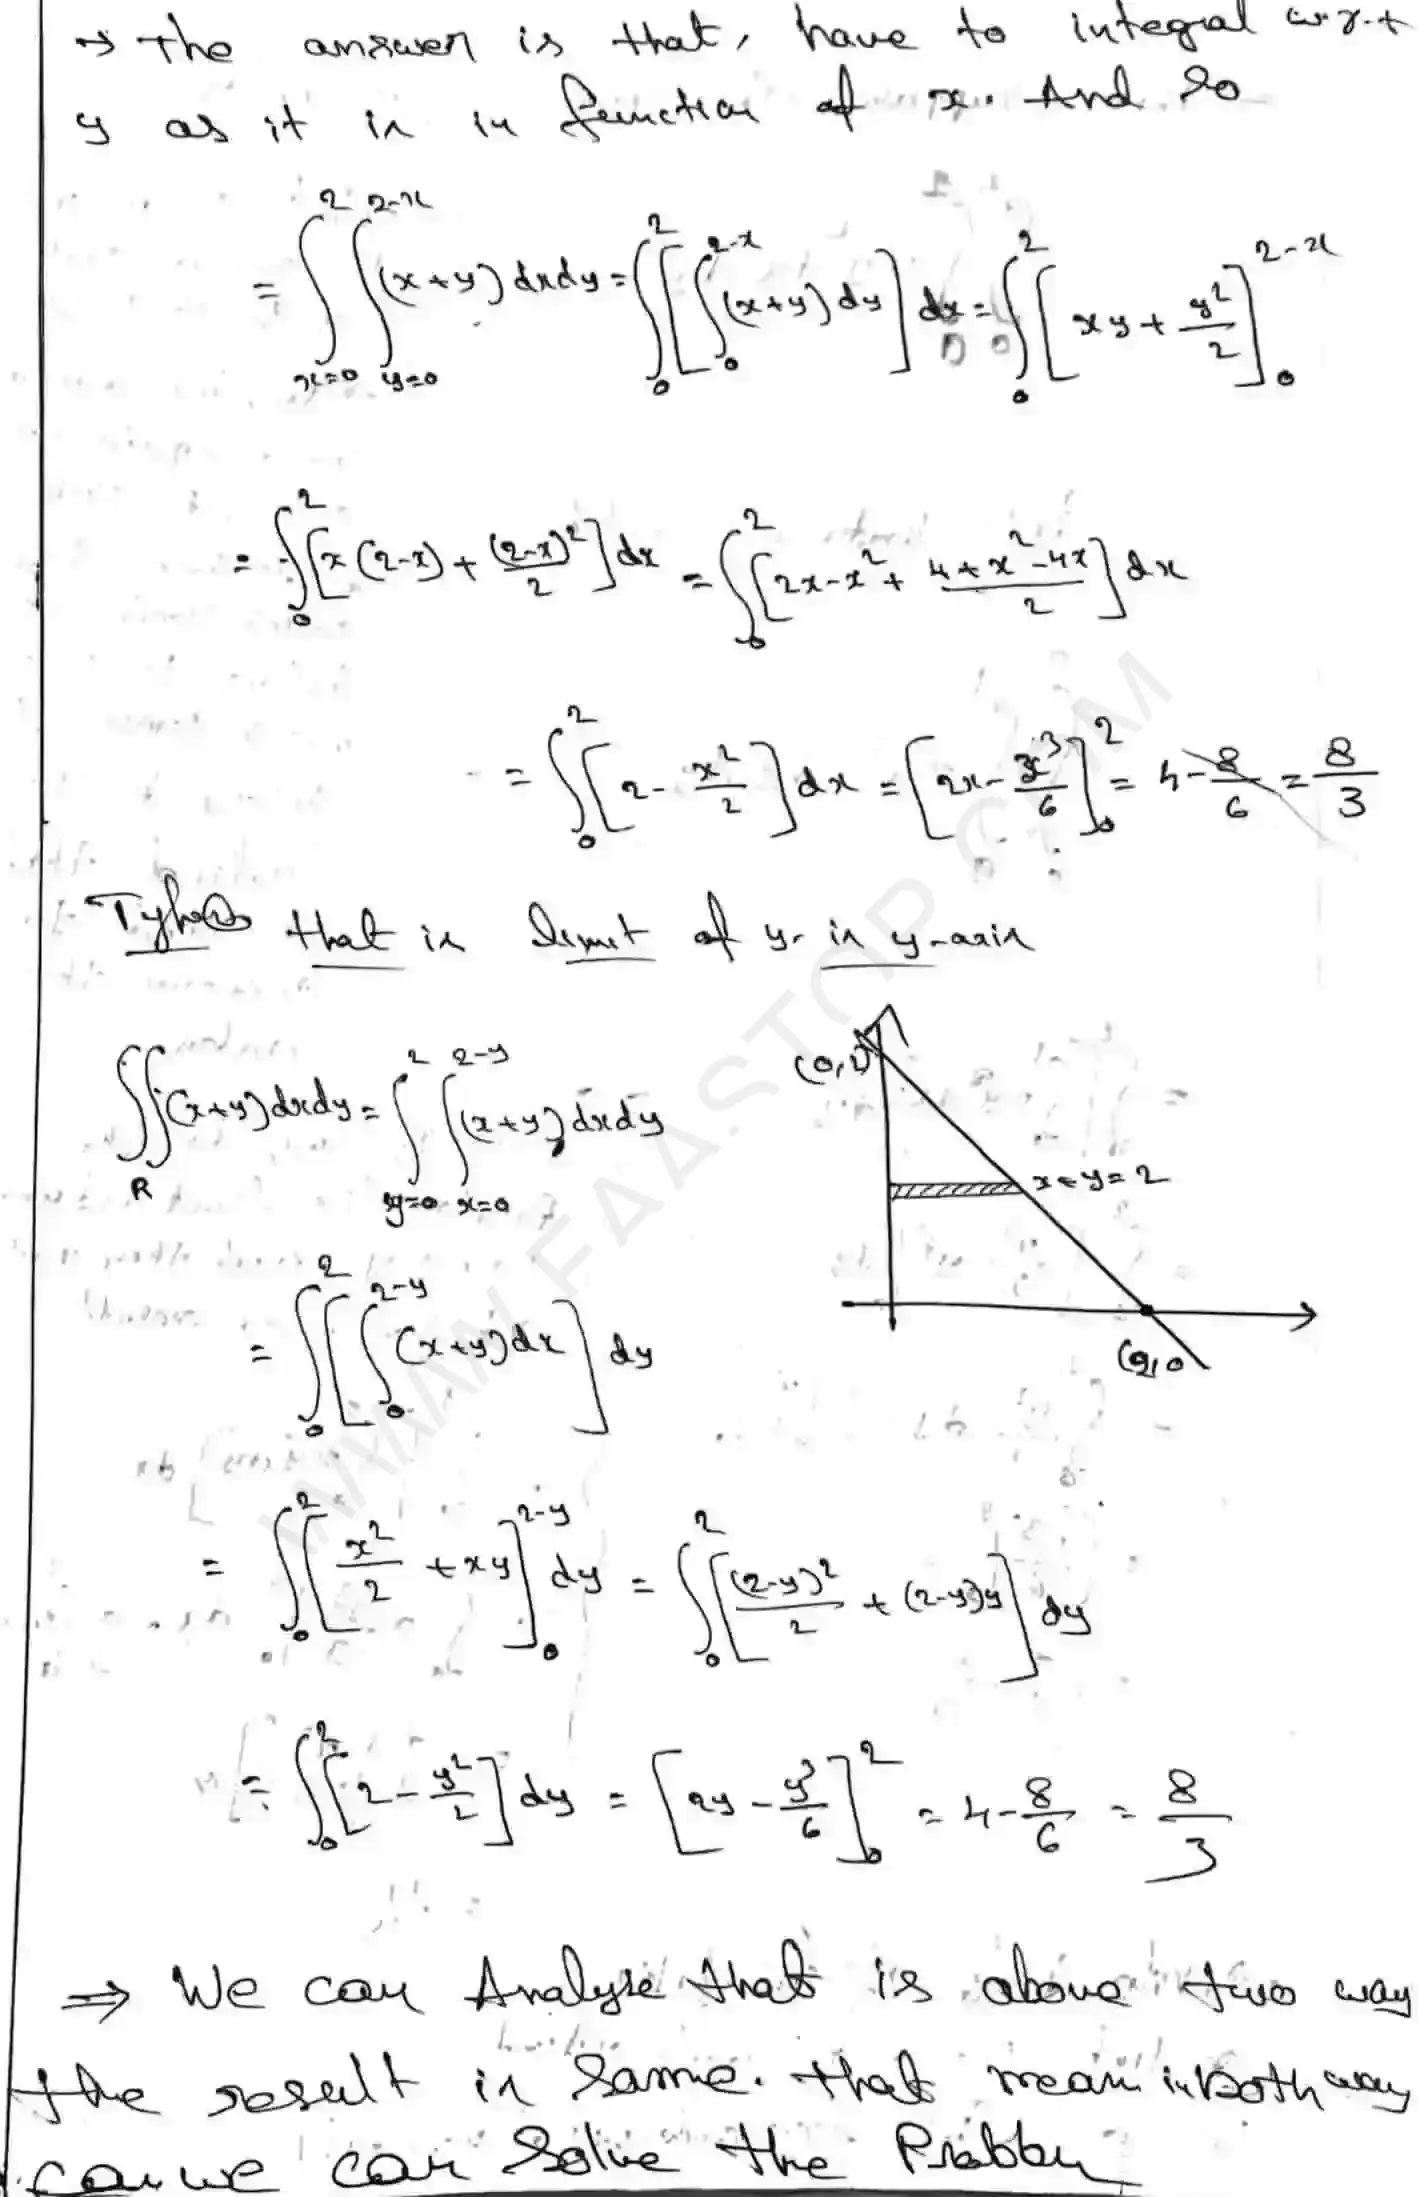 → The answer is that, have to integral w.r.t
y as it is in function of x. And so
= ∫_{x=0}^{2} ∫_{y=0}^{2-x} (x+y) dxdy = ∫_0^2 [∫_0^{2-x} (x+y) dy] dx = ∫_0^2 [xy + y²/2]_0^{2-x}
= ∫_0^2 [x(2-x) + (2-x)²/2] dx = ∫_0^2 [2x-x² + (4+x²-4x)/2] dx
= ∫_0^2 [2 - x²/2] dx = [2x - x³/6]_0^2 = 4 - 8/6 = 8/3
that is limit of y. in y-axis
∫∫_R (x+y) dxdy = ∫_{y=0}^{2} ∫_{x=0}^{2-y} (x+y) dxdy
(0,2)
x+y=2
(2,0
= ∫_0^2 [∫_0^{2-y} (x+y) dx] dy
= ∫_0^2 [x²/2 + xy]_0^{2-y} dy = ∫_0^2 [(2-y)²/2 + (2-y)y] dy
= ∫_0^2 [2 - y²/2] dy = [2y - y³/6]_0^2 = 4 - 8/6 = 8/3
⇒ We can Analyse that is above two way
the result is same. that mean in both way
can we can Solve the Problem
WWW.FAASTOP.COM